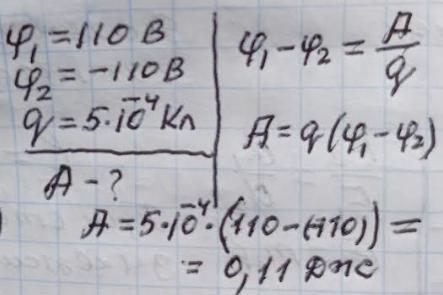 φ₁ = 110 В
φ₂ = -110 В
q = 5·10⁻⁴ Кл
A - ?
φ₁ - φ₂ = A/q
A = q(φ₁ - φ₂)
A = 5·10⁻⁴·(110-(-110)) =
= 0,11 Дж